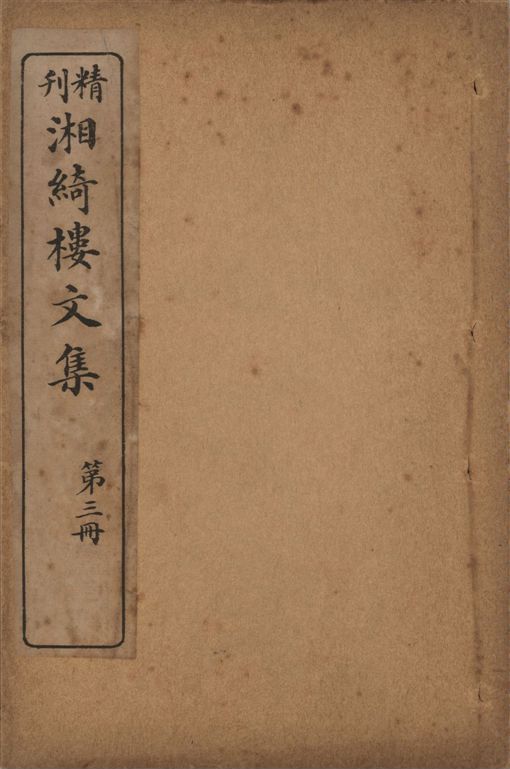 精刊
湘綺樓文集
第三冊